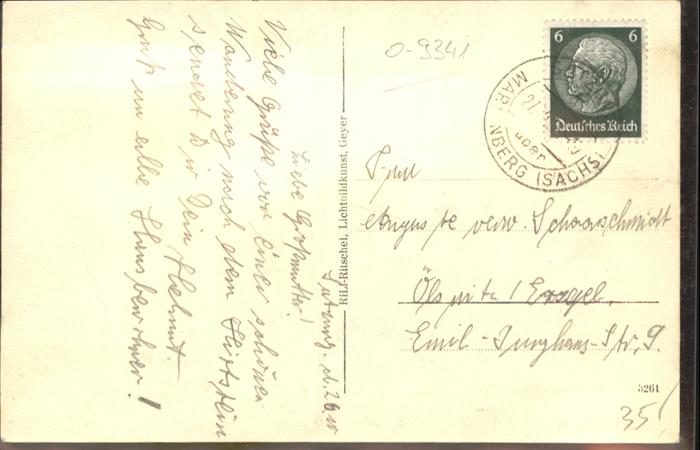 Liebe Großmutter!
Viele Grüße von einer schönen
Wanderung nach dem Hirtstein
sendet Dir Dein Helmut.
Gruß an alle Hausbewohner!
RiLi-Ritschel, Lichtbildkunst, Geyer
0-9341
6 6
Deutsches Reich
MAR NBERG (SACHS)
über
21
Frau
Auguste verw. Schaarschmidt
Ölsnitz / Erzgeb.
Emil-Junghans-Str. 9.
3261
35